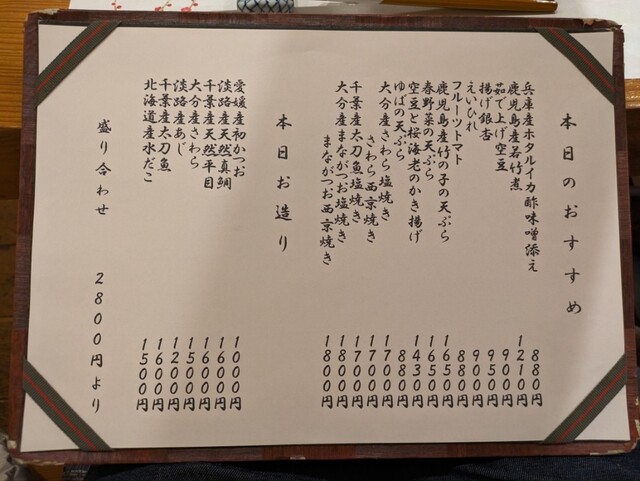 本日のおすすめ
兵庫産ホタルイカ酢味噌添え 880円
鹿児島産若竹煮 1210円
茹で上げ空豆 900円
揚げ銀杏 950円
えいひれ
フルーツトマト 880円
鹿児島産竹の子の天ぷら 1650円
春野菜の天ぷら 1650円
空豆と桜海老のかき揚げ 1430円
ゆばの天ぷら 880円
大分産さわら塩焼き 1700円
さわら西京焼き 1700円
千葉産太刀魚塩焼き 1700円
大分産まながつお塩焼き 1800円
まながつお西京焼き 1800円
本日お造り
愛媛産初かつお 1000円
淡路産天然真鯛 1600円
千葉産天然平目 1600円
大分産さわら 1500円
淡路産あじ 1200円
千葉産太刀魚 1600円
北海道産水だこ 1500円
盛り合わせ 2800円より